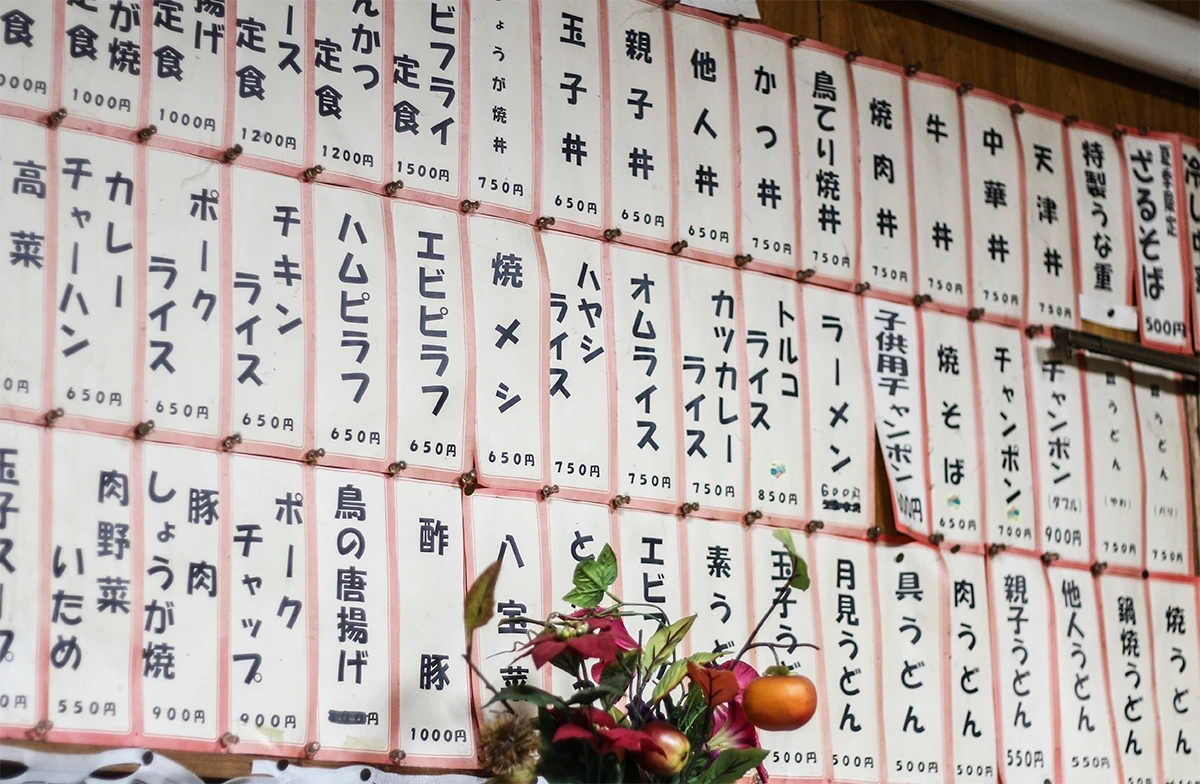 夏季限定
ざるそば
500円
特製うな重
天津丼
750円
中華丼
750円
牛丼
750円
焼肉丼
750円
鳥てり焼丼
750円
かつ丼
750円
他人丼
650円
親子丼
650円
玉子丼
650円
ょうが焼丼
750円
ビフライ
定食
1500円
んかつ
定食
1200円
ース
定食
1200円
揚げ
定食
1000円
が焼
定食
1000円
食
000円
皿うどん
(バリ)
750円
皿うどん
(やわ)
750円
チャンポン
(ダブル)
900円
チャンポン
700円
焼そば
650円
子供用チャンポン
00円
ラーメン
600円
トルコ
ライス
850円
カツカレー
ライス
750円
オムライス
750円
ハヤシ
ライス
750円
焼メシ
650円
エビピラフ
650円
ハムピラフ
650円
チキン
ライス
650円
ポーク
ライス
650円
カレー
チャーハン
650円
高菜
0円
焼うどん
鍋焼うどん
他人うどん
550円
親子うどん
550円
肉うどん
500円
具うどん
500円
月見うどん
500円
玉子うど
500円
素うど
エビ
と
八宝菜
酢豚
1000円
鳥の唐揚げ
円
ポーク
チャップ
900円
豚肉
しょうが焼
900円
肉野菜
いため
550円
玉子スープ
0円